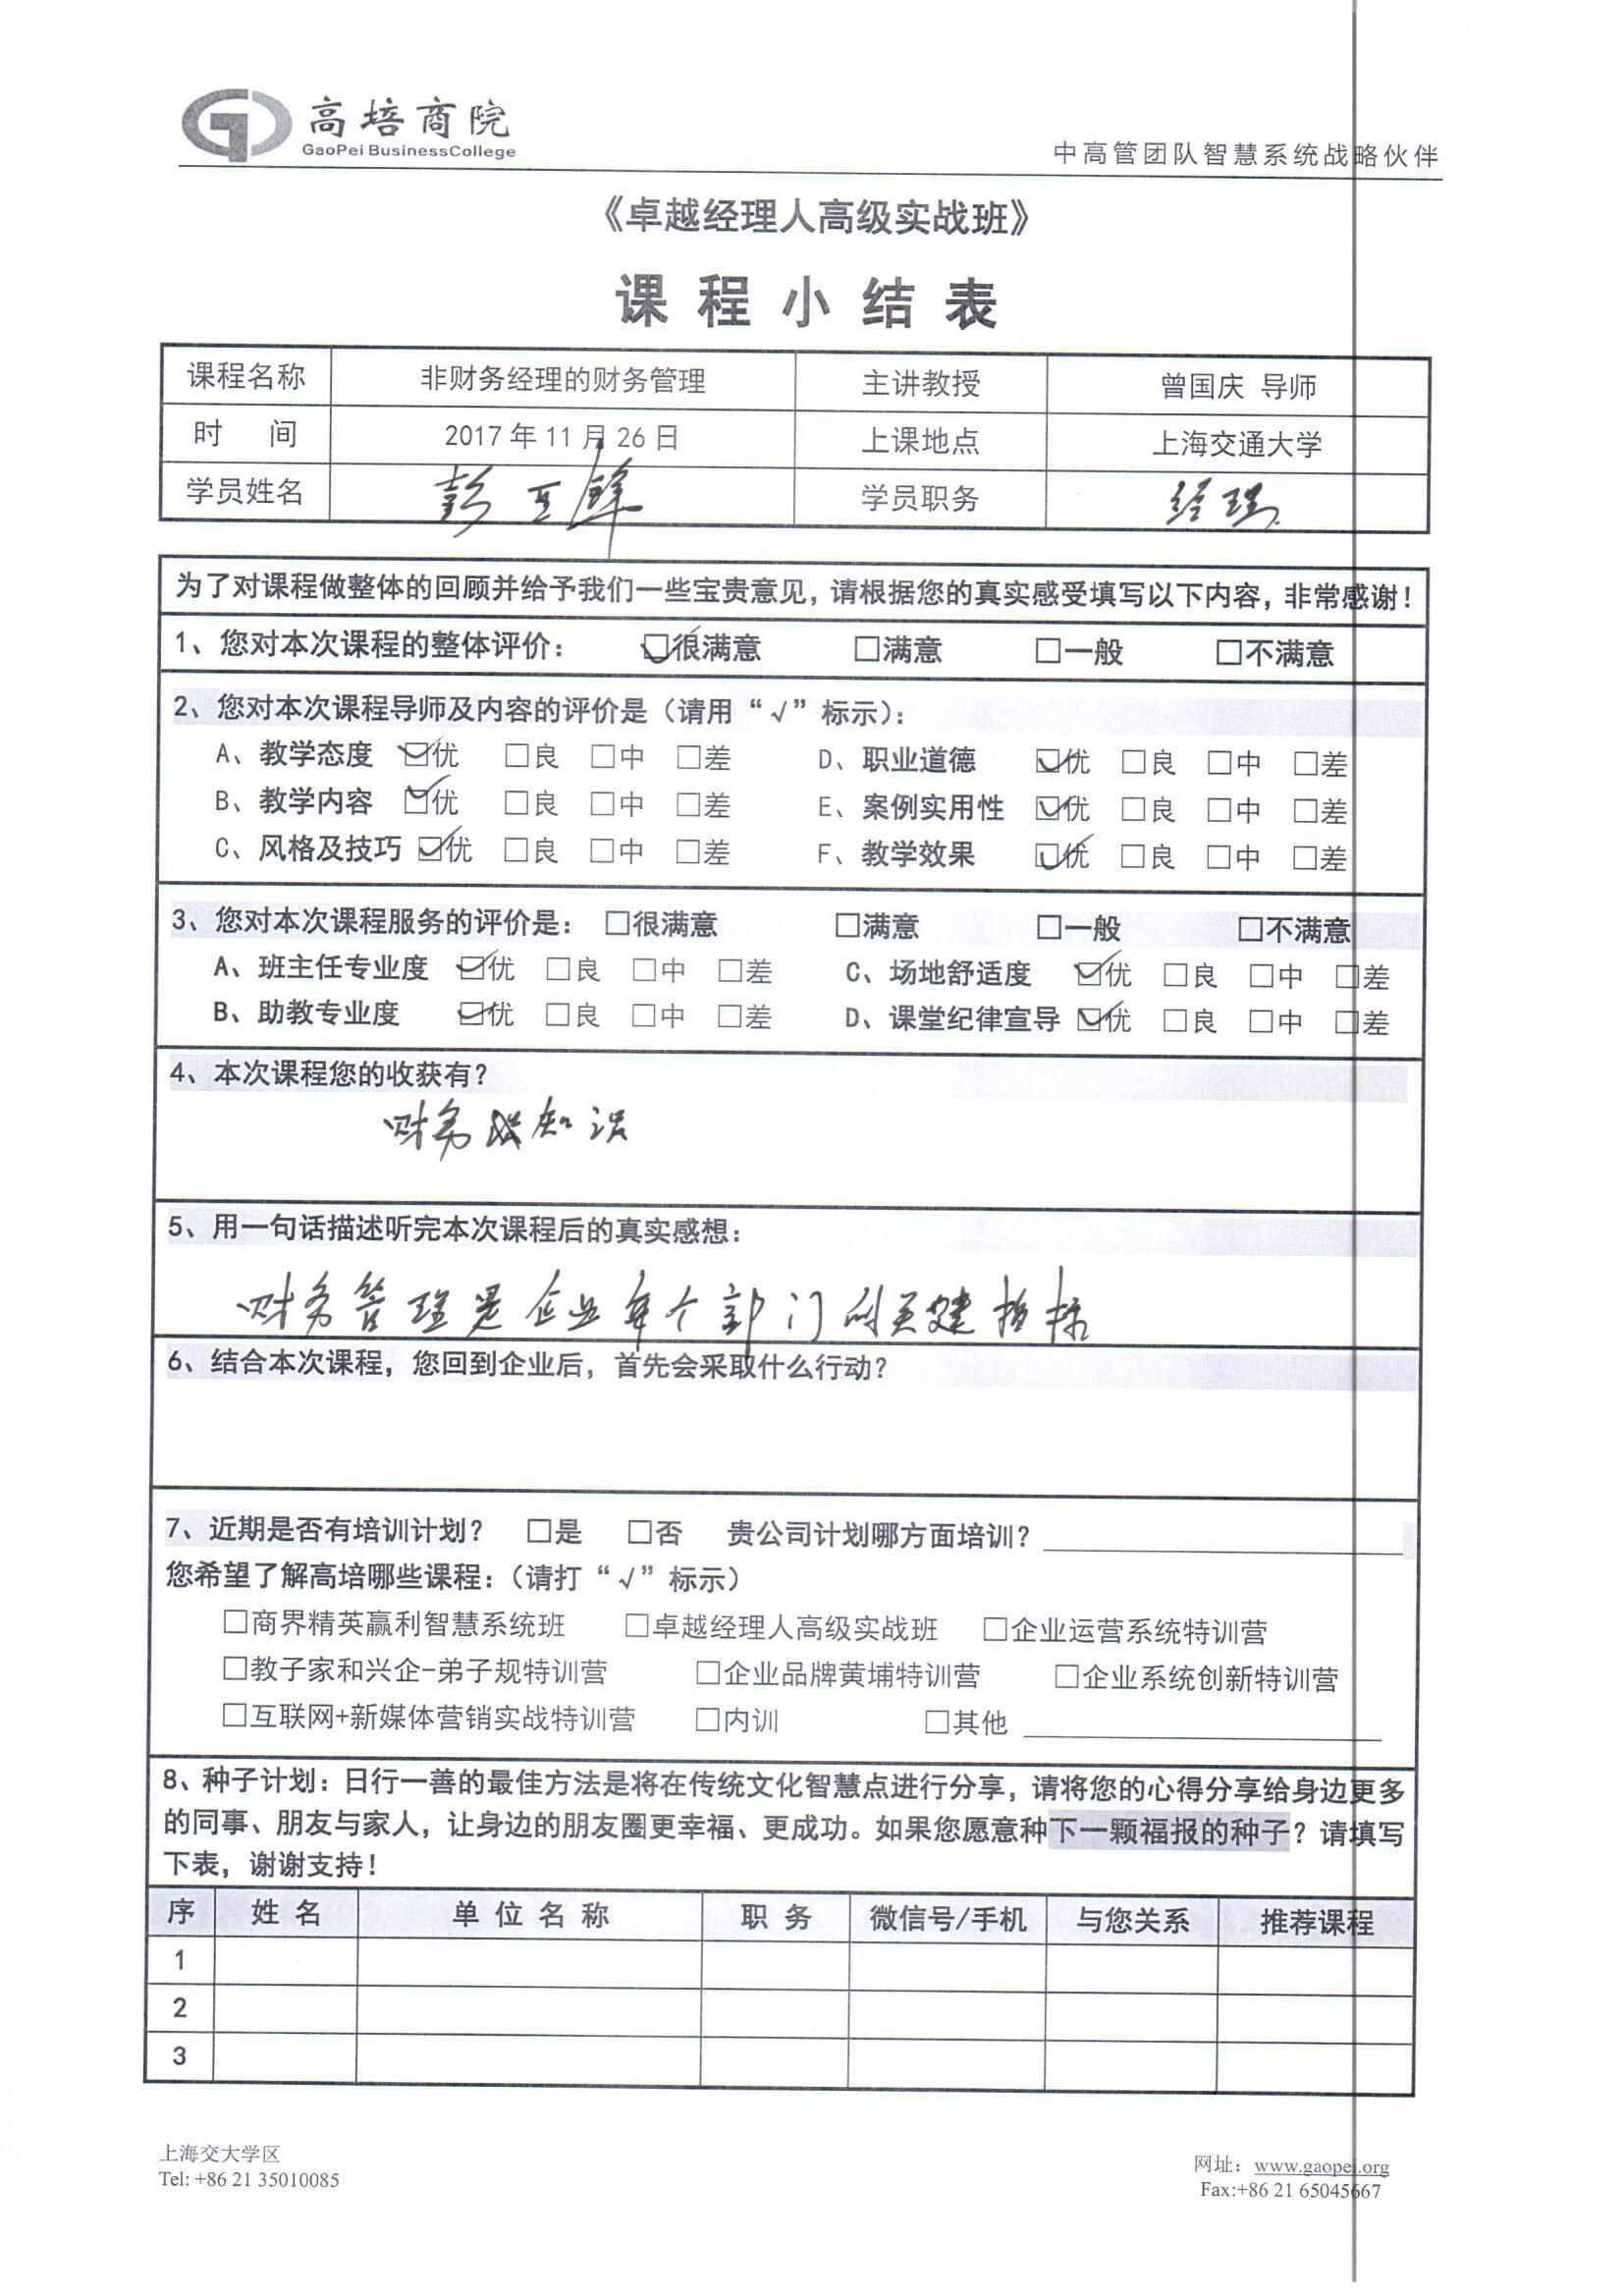 高培商院
GaoPei BusinessCollege
中高管团队智慧系统战略伙伴
《卓越经理人高级实战班》
课程小结表
课程名称 非财务经理的财务管理 主讲教授 曾国庆 导师
时 间 2017年11月26日 上课地点 上海交通大学
学员姓名 彭 学员职务 经理
为了对课程做整体的回顾并给予我们一些宝贵意见，请根据您的真实感受填写以下内容，非常感谢！
1、您对本次课程的整体评价： ☑很满意 □满意 □一般 □不满意
2、您对本次课程导师及内容的评价是（请用“√”标示）：
A、教学态度 ☑优 □良 □中 □差 D、职业道德 ☑优 □良 □中 □差
B、教学内容 ☑优 □良 □中 □差 E、案例实用性 ☑优 □良 □中 □差
C、风格及技巧 ☑优 □良 □中 □差 F、教学效果 ☑优 □良 □中 □差
3、您对本次课程服务的评价是： □很满意 □满意 □一般 □不满意
A、班主任专业度 ☑优 □良 □中 □差 C、场地舒适度 ☑优 □良 □中 □差
B、助教专业度 ☑优 □良 □中 □差 D、课堂纪律宣导 ☑优 □良 □中 □差
4、本次课程您的收获有？
财务知识
5、用一句话描述听完本次课程后的真实感想：
财务管理是企业每个部门的关建指标
6、结合本次课程，您回到企业后，首先会采取什么行动？
7、近期是否有培训计划？ □是 □否 贵公司计划哪方面培训？
您希望了解高培哪些课程：（请打“√”标示）
□商界精英赢利智慧系统班 □卓越经理人高级实战班 □企业运营系统特训营
□教子家和兴企-弟子规特训营 □企业品牌黄埔特训营 □企业系统创新特训营
□互联网+新媒体营销实战特训营 □内训 □其他
8、种子计划：日行一善的最佳方法是将在传统文化智慧点进行分享，请将您的心得分享给身边更多
的同事、朋友与家人，让身边的朋友圈更幸福、更成功。如果您愿意种下一颗福报的种子？请填写
下表，谢谢支持！
序 姓名 单位名称 职务 微信号/手机 与您关系 推荐课程
1
2
3
上海交大学区
Tel: +86 21 35010085
网址：www.gaopei.org
Fax:+86 21 65045667